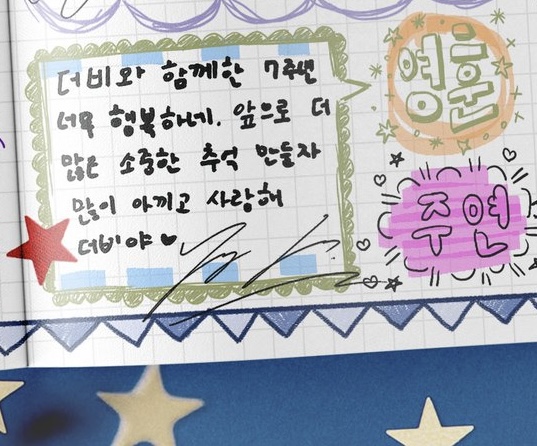 더비와 함께한 7주년
너무 행복하네. 앞으로 더
많은 소중한 추억 만들자
많이 아끼고 사랑해
더비야♥
영훈
주연